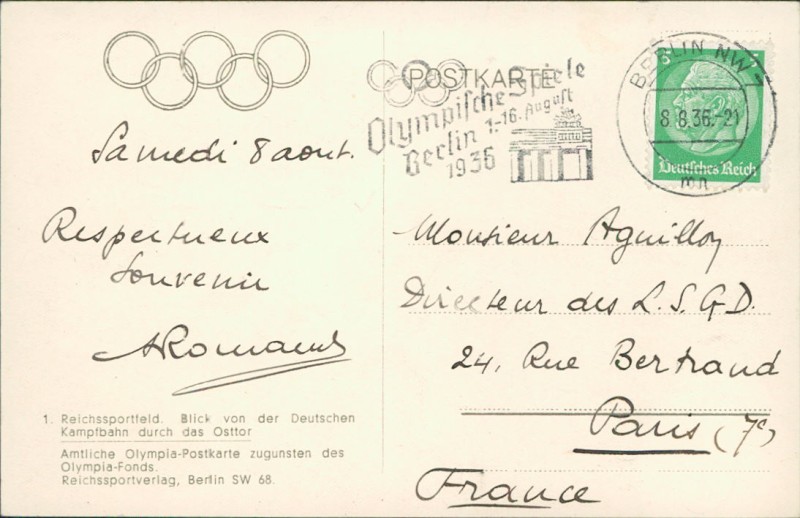 POSTKARTE
Olympische Spiele
Berlin 1.-16. August
1936
BERLIN NW 7
8.8.36.-21
mn
Deutsches Reich
Samedi 8 aout.
Respectueux
Souvenir
1. Reichssportfeld. Blick von der Deutschen
Kampfbahn durch das Osttor
Amtliche Olympia-Postkarte zugunsten des
Olympia-Fonds.
Reichssportverlag, Berlin SW 68.
Monsieur Aguillon
Directeur des L.S.G.D.
24, Rue Bertrand
Paris (7e)
France